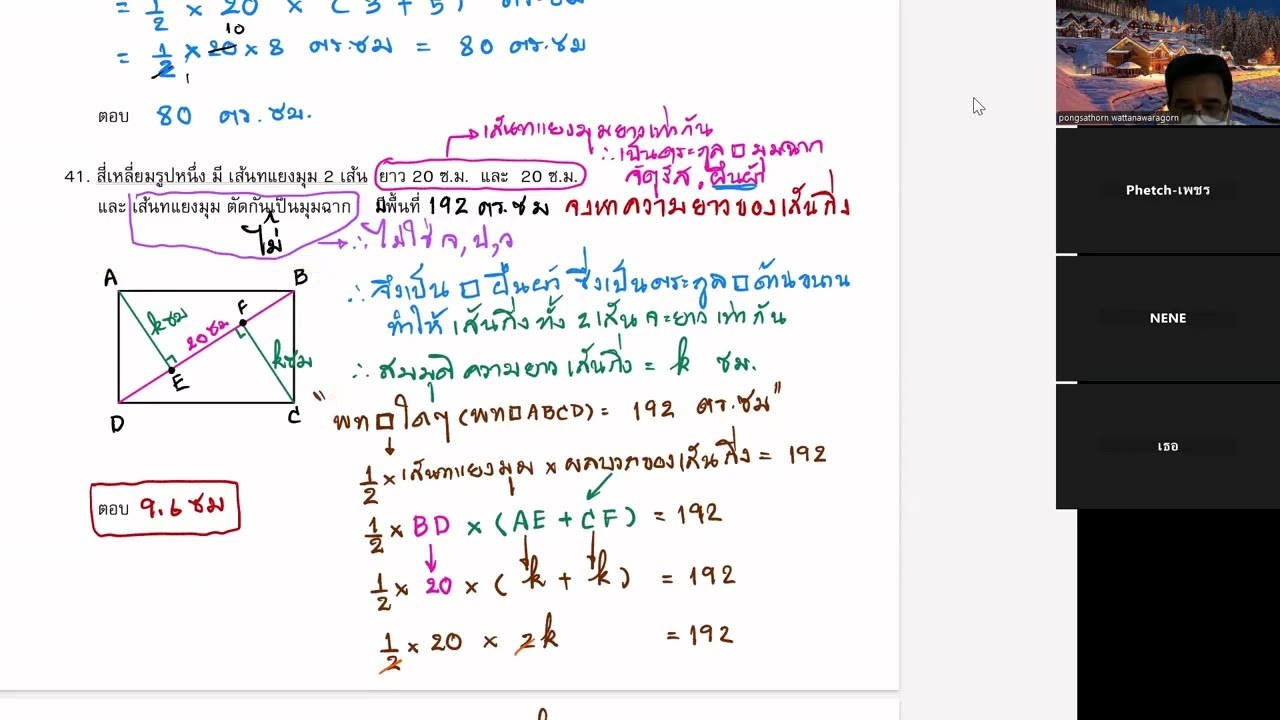 = 1/2 × 20 × (3 + 5) ตร.ซม
= 1/2 × 20 × 8 ตร.ซม = 80 ตร.ซม
10
1
ตอบ 80 ตร.ซม.
เส้นทแยงมุมยาวเท่ากัน
∴ เป็นตระกูล □ มุมฉาก
จัตุรัส, ผืนผ้า
41. สี่เหลี่ยมรูปหนึ่ง มี เส้นทแยงมุม 2 เส้น ยาว 20 ซ.ม. และ 20 ซ.ม.
และ เส้นทแยงมุม ตัดกันเป็นมุมฉาก มีพื้นที่ 192 ตร.ซม จงหาความยาวของเส้นกิ่ง
ไม่
∴ ไม่ใช่ จ, ป, ว
∴ จึงเป็น □ ผืนผ้า ซึ่งเป็นตระกูล □ ด้านขนาน
ทำให้ เส้นกิ่งทั้ง 2 เส้น จะยาวเท่ากัน
∴ สมมุติ ความยาวเส้นกิ่ง = k ซม.
A
B
F
k ซม
20 ซม
k ซม
E
D
C
"พท □ ใดๆ (พท□ABCD) = 192 ตร.ซม"
1/2 × เส้นทแยงมุม × ผลบวกของเส้นกิ่ง = 192
1/2 × BD × (AE + CF) = 192
1/2 × 20 × (k + k) = 192
1/2 × 20 × 2k = 192
ตอบ 9.6 ซม
pongsathorn wattanawaragorn
Phetch-เพชร
NENE
เธอ